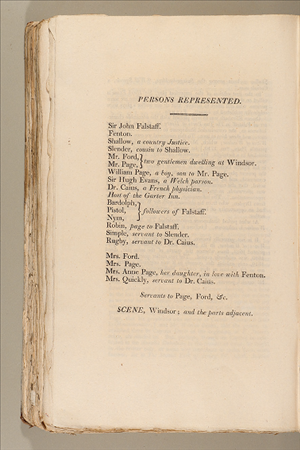 PERSONS REPRESENTED.
Sir John Falstaff.
Fenton.
Shallow, a country Justice.
Slender, cousin to Shallow.
Mr. Ford,
Mr. Page, } two gentlemen dwelling at Windsor.
William Page, a boy, son to Mr. Page.
Sir Hugh Evans, a Welch parson.
Dr. Caius, a French physician.
Host of the Garter Inn.
Bardolph,
Pistol, } followers of Falstaff.
Nym,
Robin, page to Falstaff.
Simple, servant to Slender.
Rugby, servant to Dr. Caius.
Mrs. Ford.
Mrs. Page.
Mrs. Anne Page, her daughter, in love with Fenton.
Mrs. Quickly, servant to Dr. Caius.
Servants to Page, Ford, &c.
SCENE, Windsor; and the parts adjacent.